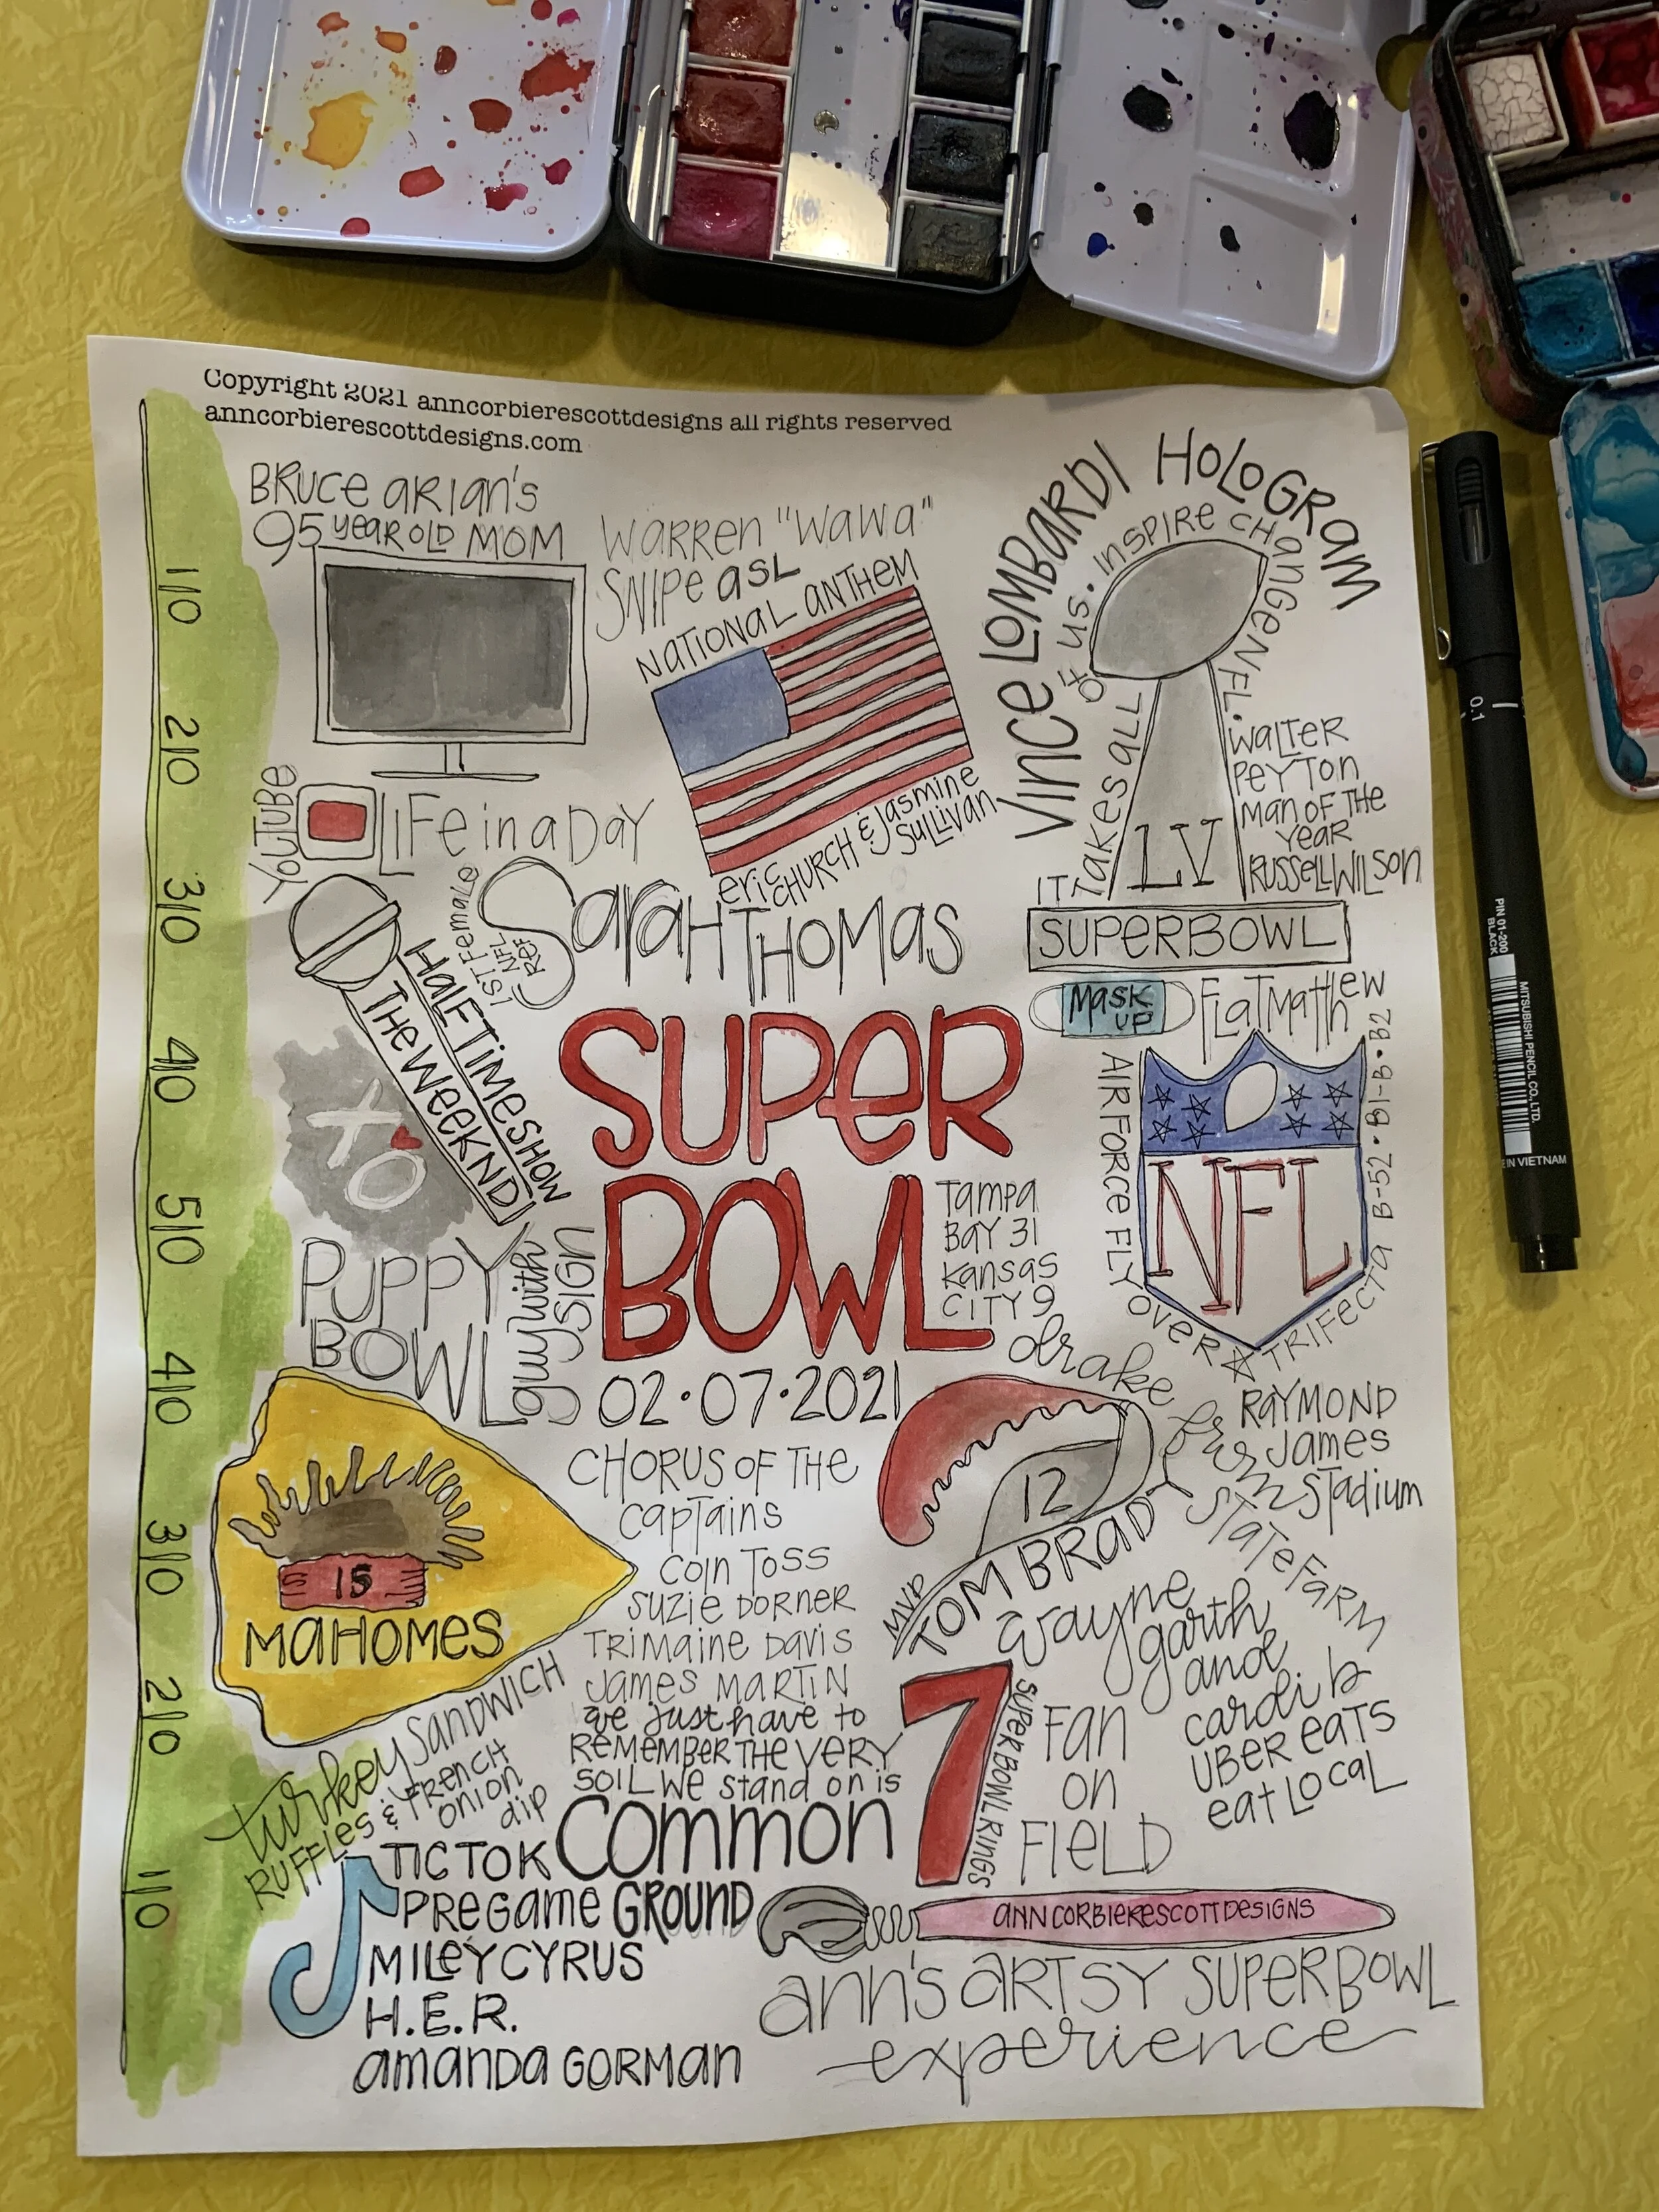 Copyright 2021 anncorbierescottdesigns all rights reserved
anncorbierescottdesigns.com
BRUCE ARIAN'S
95 YEAR OLD MOM
WARREN "WAWA"
SNIPE ASL
NATIONAL ANTHEM
ERIC CHURCH & JASMINE
SULLIVAN
VINCE LOMBARDI HOLOGRAM
IT TAKES ALL OF US. INSPIRE CHANGE NFL.
LV
SUPERBOWL
WALTER
PEYTON
MAN OF THE
YEAR
RUSSELL WILSON
YOUTUBE
LIFE IN A DAY
1ST FEMALE
NFL
REF
SARAH THOMAS
HALFTIME SHOW
THE WEEKND
XO
MASK
UP
FLAT MATTHEW
AIRFORCE FLYOVER TRIFECTA B-52 • B1-B • B2
NFL
SUPER
BOWL
02•07•2021
TAMPA
BAY 31
KANSAS
CITY 9
PUPPY
BOWL
guy with
SIGN
15
MAHOMES
CHORUS OF THE
CAPTAINS
COIN TOSS
SUZIE DORNER
TRIMAINE DAVIS
JAMES MARTIN
we just have to
REMEMBER THE VERY
SOIL WE stand on is
COMMON
GROUND
drake from
STATE FARM
RAYMOND
JAMES
STADIUM
12
MVP
TOM BRADY
7
SUPER BOWL RINGS
wayne
garth
and
cardi b
UBER EATS
eat LOCAL
FAN
ON
FIELD
turkey SANDWICH
RUFFLES & FRENCH
ONION
dip
TICTOK
PREGAME
MILEY CYRUS
H.E.R.
AMANDA GORMAN
ANNCORBIERESCOTTDESIGNS
ANN'S ARTSY SUPERBOWL
experience
1|0
2|0
3|0
4|0
5|0
4|0
3|0
2|0
1|0
0.1
PIN 01-200
BLACK
MITSUBISHI PENCIL CO., LTD.
E IN VIETNAM